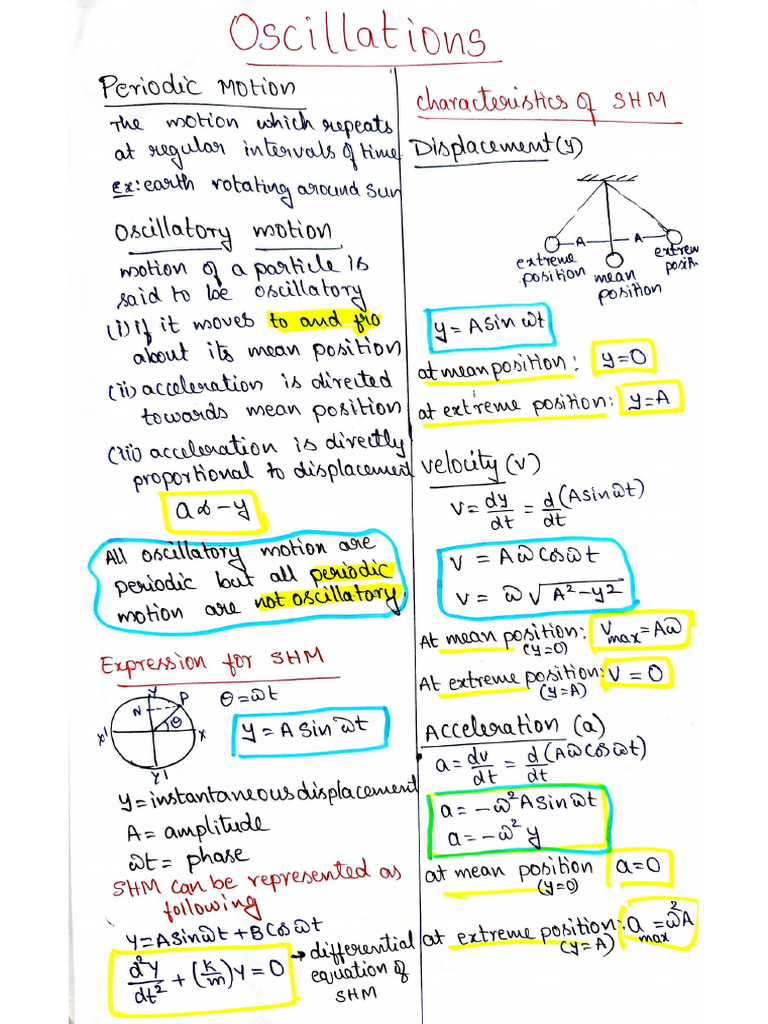 Oscillations
Periodic Motion
The motion which repeats
at regular intervals of time
ex: earth rotating around sun
Oscillatory motion
motion of a particle is
said to be oscillatory
(i) if it moves to and fro
about its mean position
(ii) acceleration is directed
towards mean position
(iii) acceleration is directly
proportional to displacement
a ∝ -y
All oscillatory motion are
periodic but all periodic
motion are not oscillatory
Expression for SHM
Y
N
P
θ
X'
X
Y'
θ = ωt
y = A sin ωt
y = instantaneous displacement
A = amplitude
ωt = phase
SHM can be represented as
following
y = A sin ωt + B cos ωt
d²y/dt² + (k/m) y = 0
→ differential
equation of
SHM
characteristics of SHM
Displacement (y)
A
A
extreme
position
mean
position
extrem
posi
y = A sin ωt
at mean position: y = 0
at extreme position: y = A
velocity (v)
v = dy/dt = d/dt (A sin ωt)
v = Aω cos ωt
v = ω √(A² - y²)
At mean position: Vmax = Aω
(y=0)
At extreme position: v = 0
(y=A)
Acceleration (a)
a = dv/dt = d/dt (Aω cos ωt)
a = -ω² A sin ωt
a = -ω² y
at mean position a = 0
(y=0)
at extreme position: a max = ω² A
(y=A)